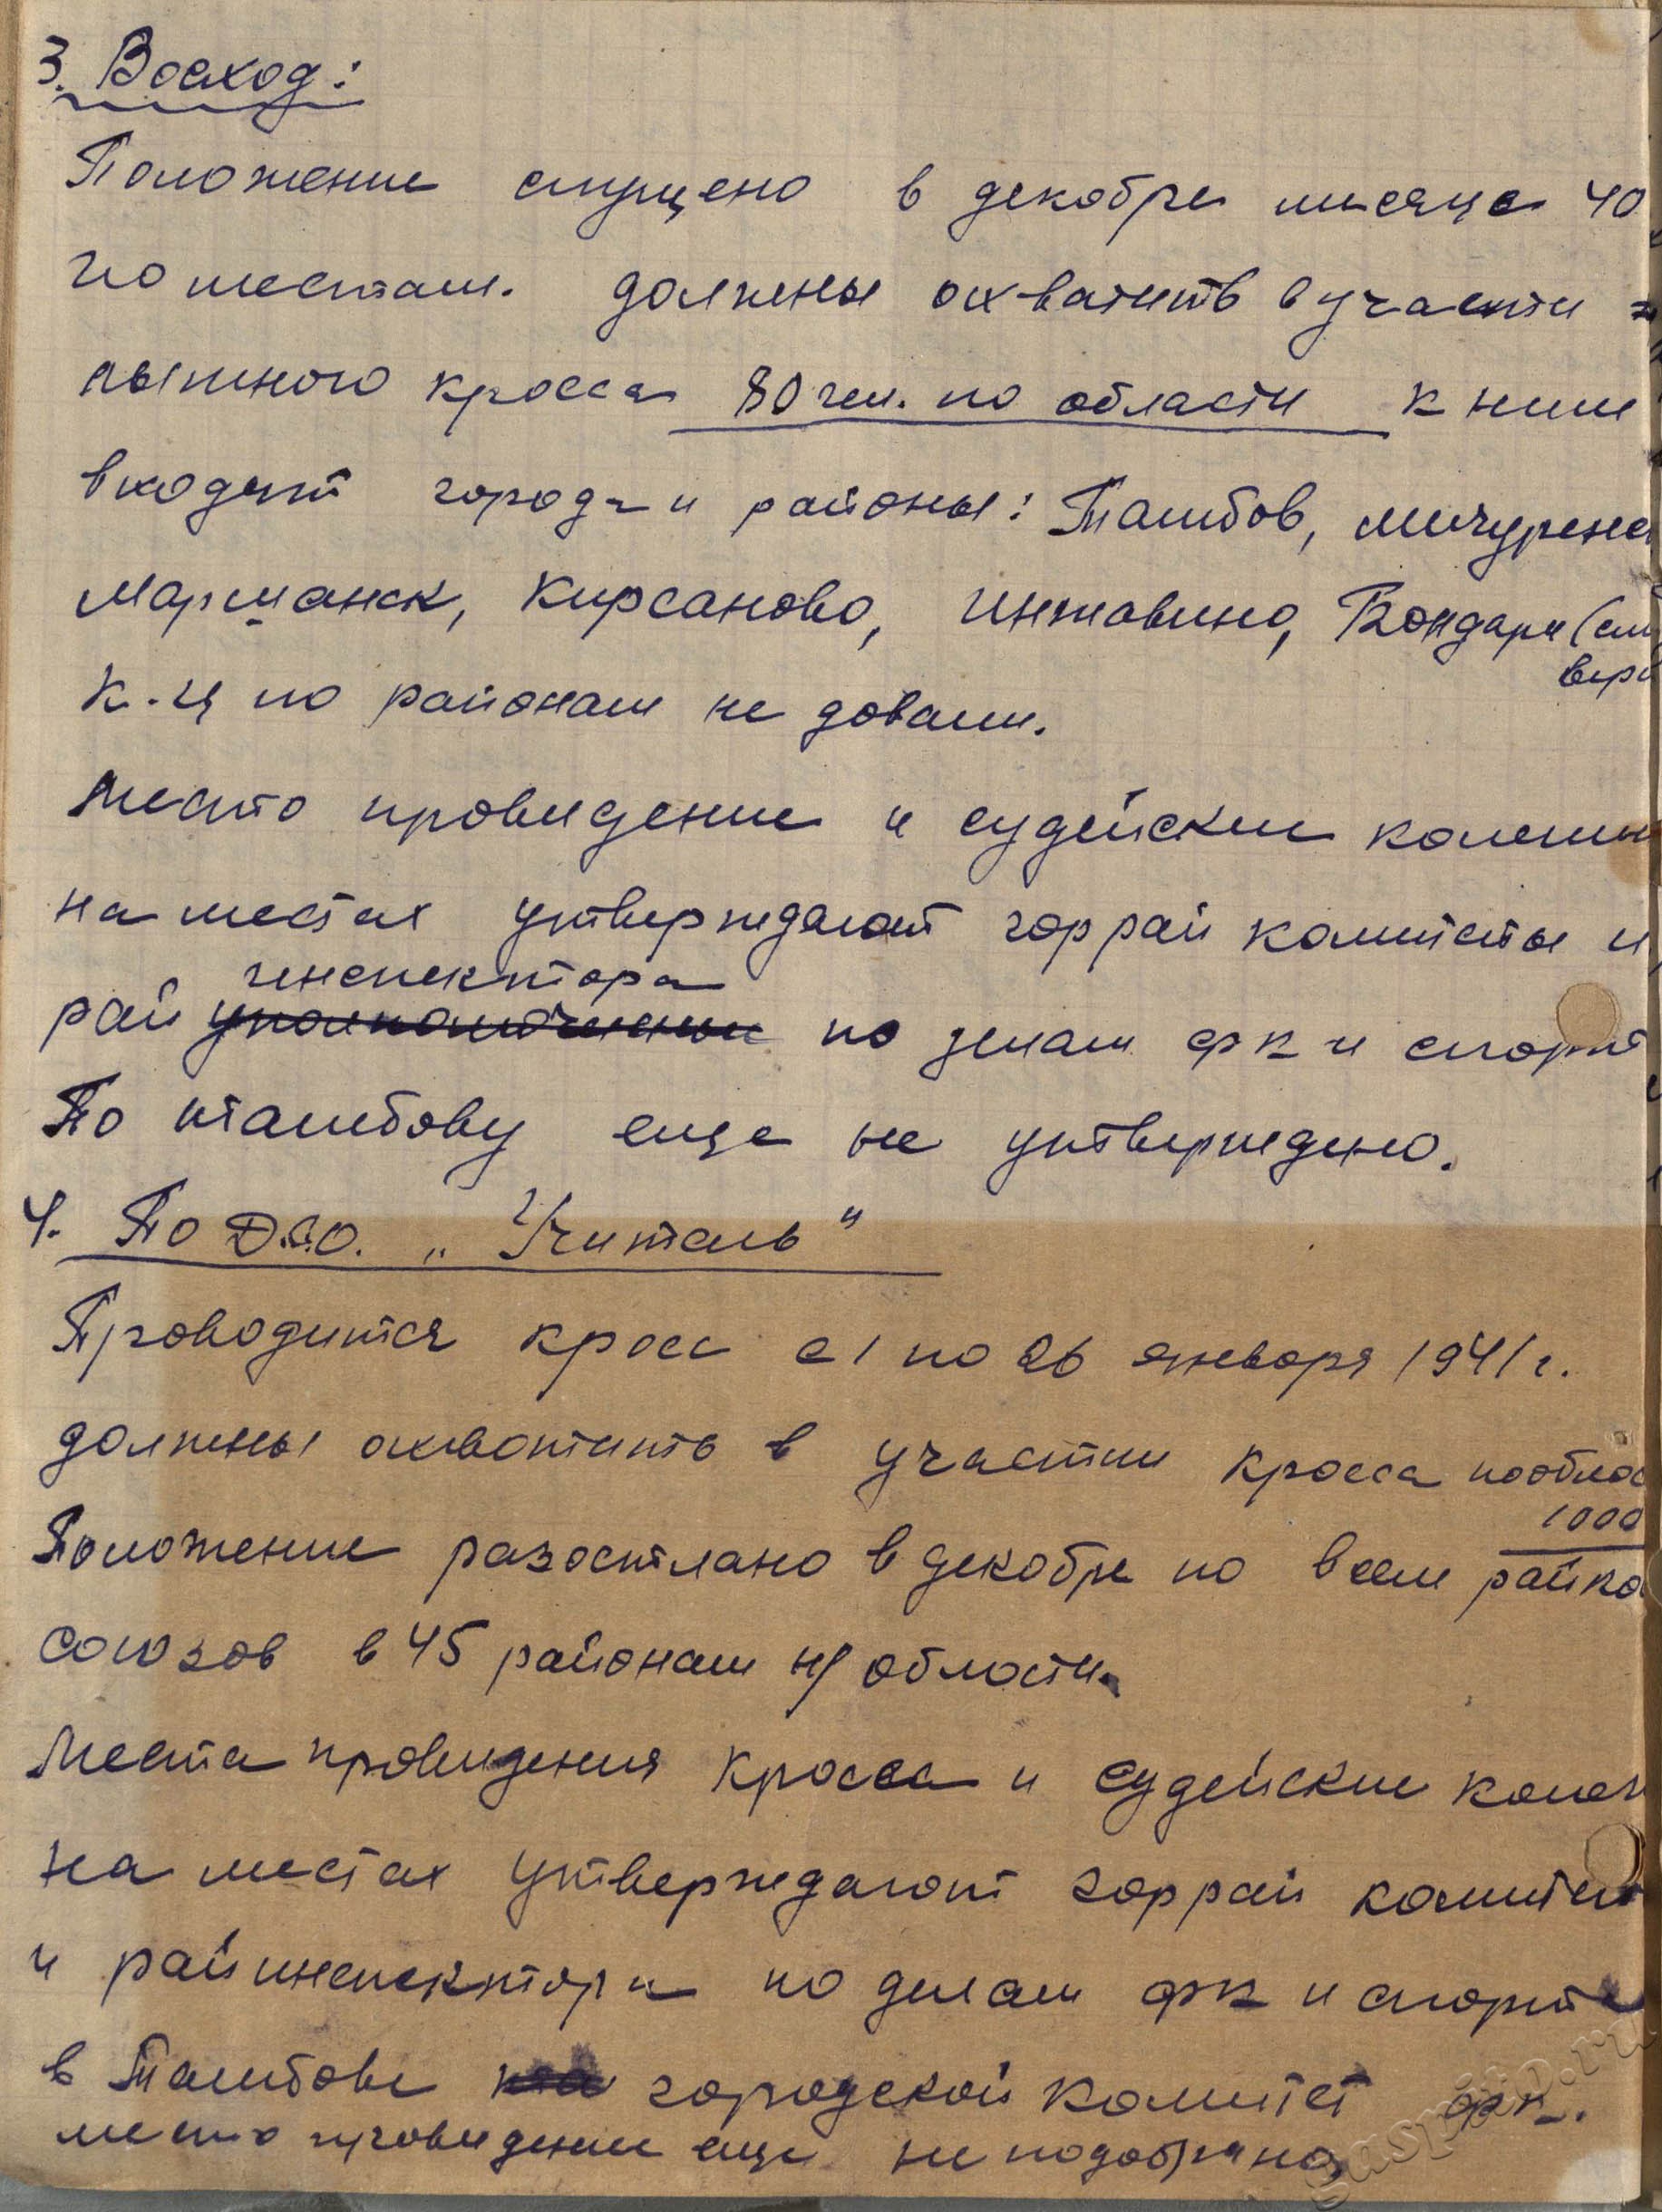 3. Восход:
Положение спущено в декобре месяце 40
по местам. должны охватить в участи
лыжного кросса 80 чел. по области к ним
входят города и районы: Тамбов, мичурено
Маршанск, Кирсаново, Инжавино, Бондари (см
верх
к.-ц по районам не довали.
Место проведение и судейские колеги
на местах утверждают горрай комитеты и
инспектора
рай уполномоченные по делам фк и спорт
По тамбову еще не утверждено.
4. По Д.С.О. „Учитель"
Проводится кросс с 1 по 26 января 1941 г.
должны охвотить в участии кросса по облас
1000
Положение разостлано в декобре по всем райко
союзов в 45 районам н/ области.
Места проведения кросса и судейские колег
на местах утверждают горрай комитет
и райинспектора по делам фк и спорта
в Тамбове городской комитет фк.
место проведение еще не подобрано
gaspito.ru